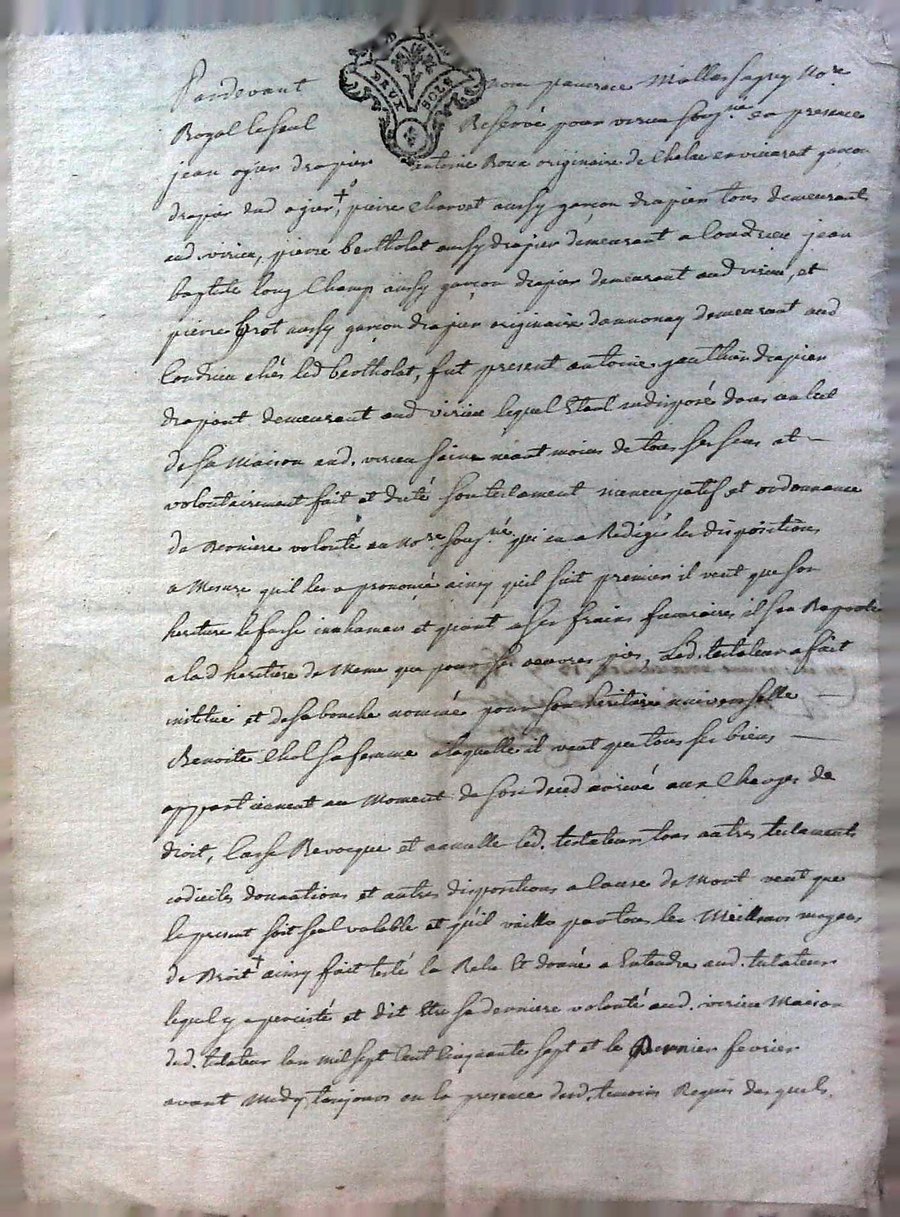 Pardevant
DEUX SOLS
Royal le seul Reservé pour virieu soussigné en presence
jean ogier drapier antoine Roux originaire de en vivarat garcon
drapier dud ogier + pierre Charvet aussy garçon drapier tous demeurant
aud. virieu, pierre bertholat aussy drapier demeurant a Condrieu jean
baptiste long Champ aussy garcon drapier demeurant aud virieu, et
pierre grot aussy garcon drapier originaire dannonay demeurant aud
Condrieu chés led bertholat, fut present antoine gauthier drapier
drapant demeurant aud virieu lequel Etant indisposé dans un lit
de sa Maison aud. virieu sain neant moins de tous ses sens at
volontairement fait et dicté son testament nuncupatif et ordonnance
de derniere volonté au No.re soussigné qui en a Redigé les dispositions
a Mesure quil les a prononcé ainsy quil suit premier il veut que son
heritiere le fasse inhumer et quant a ses frais funeraires il sen Raporte
a lad heritiere de Meme que pour ses oeuvres pies, Led. testateur a fait
institué et de sa bouche nommé pour son heritiere universselle
Benoite Chol sa femme a laquelle il veut que tous ses biens
appartiennent au Moment de son deced arrivé aux Charges de
droit, Casse Revocque et annulle led. testateur tous autres testaments
codiciles donnations et autres dispositions a cause de Mort veut que
le present soit seul valable et quil vaille par tous les Meilleurs moyens
de Droit + ainsy fait testé lu Relu Et donné a Entendre aud. testateur
lequel y a percisté et dit Etre sa derniere volonté aud. virieu Maison
dud. testateur lan Mil sept Cent Cinquante sept et le Dernier fevrier
avant Midy, toujours en la presence desd. temoins Requis des quels